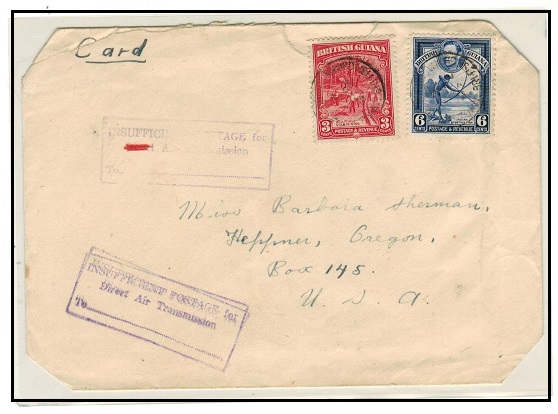 Card
BRITISH GUIANA
3 CENTS
POSTAGE & REVENUE
BRITISH GUIANA
6 CENTS
POSTAGE & REVENUE
INSUFFICIENT POSTAGE for
To
Miss Barbara Sherman,
Heppner, Oregon,
Box 145.
U. S. A.
INSUFFICIENT POSTAGE for
Direct Air Transmission
To